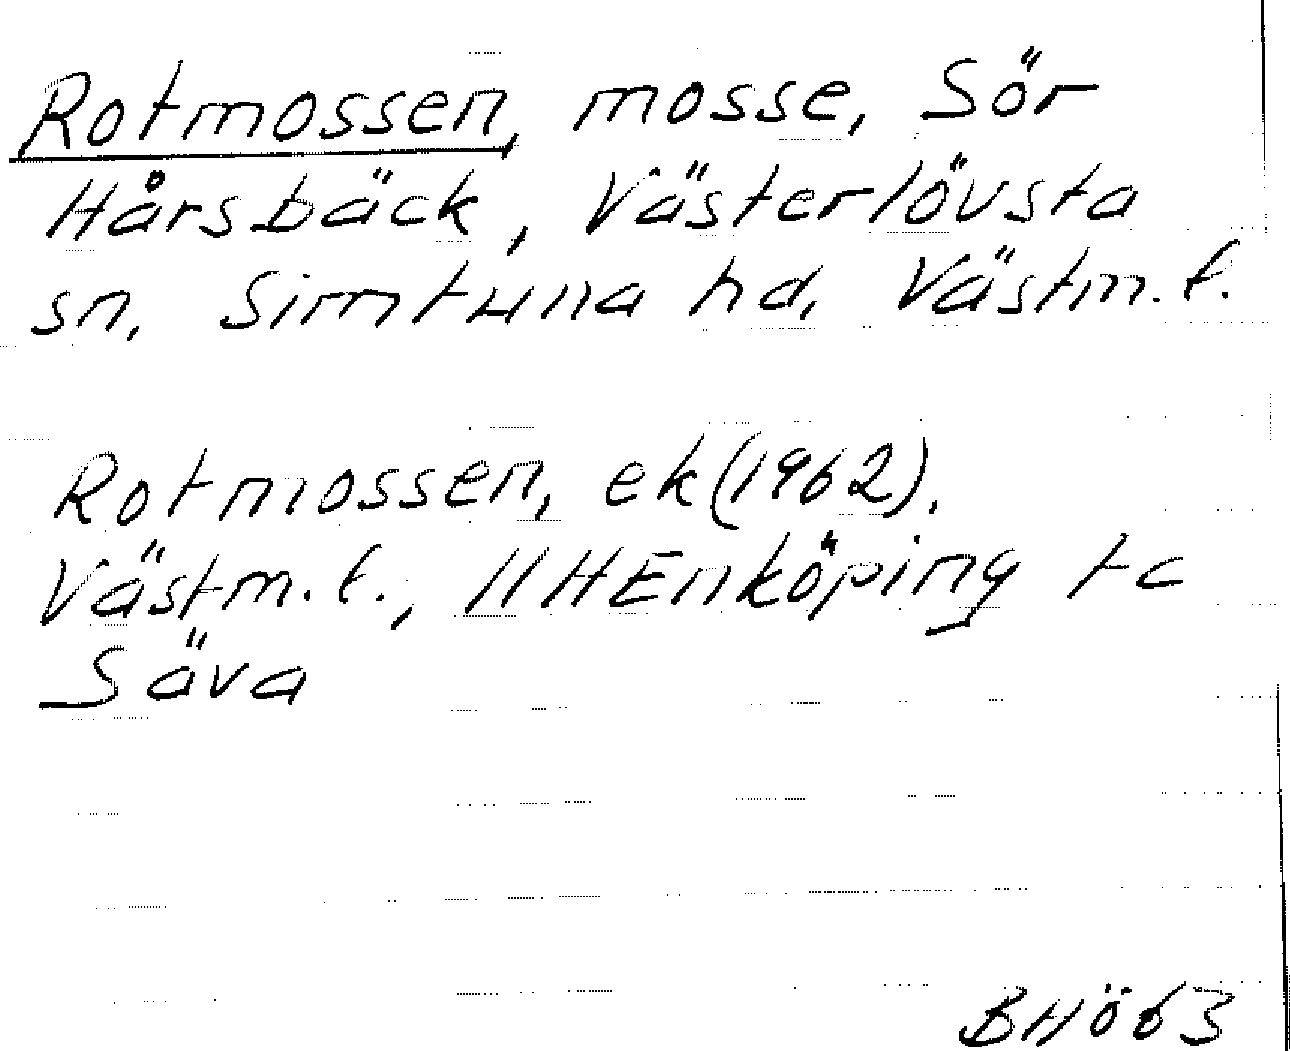 Rotmossen, mosse, Sör
Hårsbäck, Västerlövsta
sn, Simtuna hd, Västm.l.
Rotmossen, ek(1962).
Västm.l., 11HEnköping tc
Säva
BHö63